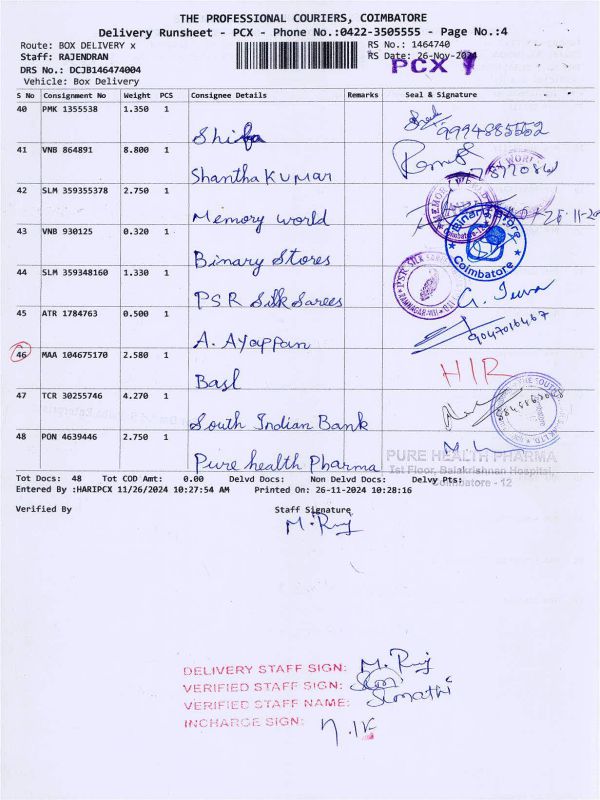 THE PROFESSIONAL COURIERS, COIMBATORE
Delivery Runsheet - PCX - Phone No.:0422-3505555 - Page No.:4
Route: BOX DELIVERY x
RS No.: 1464740
Staff: RAJENDRAN
RS Date: 26-Nov-2024
PCX
DRS No.: DCJB146474004
Vehicle: Box Delivery
S No Consignment No Weight PCS Consignee Details Remarks Seal & Signature
40 PMK 1355538 1.350 1
Shifa
9994885552
41 VNB 864891 8.800 1
Shantha Kumar
42 SLM 359355378 2.750 1
Memory world
MEMORY WORLD
43 VNB 930125 0.320 1
Binary Stores
Binary Store
Coimbatore
44 SLM 359348160 1.330 1
PSR Silk Sarees
PSR SILK
45 ATR 1784763 0.500 1
A. Ayappan
9047016467
46 MAA 104675170 2.580 1
Basl
HIR
47 TCR 30255746 4.270 1
South Indian Bank
THE SOUTH
48 PON 4639446 2.750 1
Pure health Pharma
PURE HEALTH PHARMA
1st Floor, Balakrishnan Hospital,
Coimbatore - 12
Tot Docs: 48 Tot COD Amt: 0.00 Delvd Docs: Non Delvd Docs: Delvy Pts:
Entered By :HARIPCX 11/26/2024 10:27:54 AM Printed On: 26-11-2024 10:28:16
Verified By Staff Signature
M. Raj
DELIVERY STAFF SIGN: M. Raj
VERIFIED STAFF SIGN:
VERIFIED STAFF NAME: Sumathi
INCHARGE SIGN: